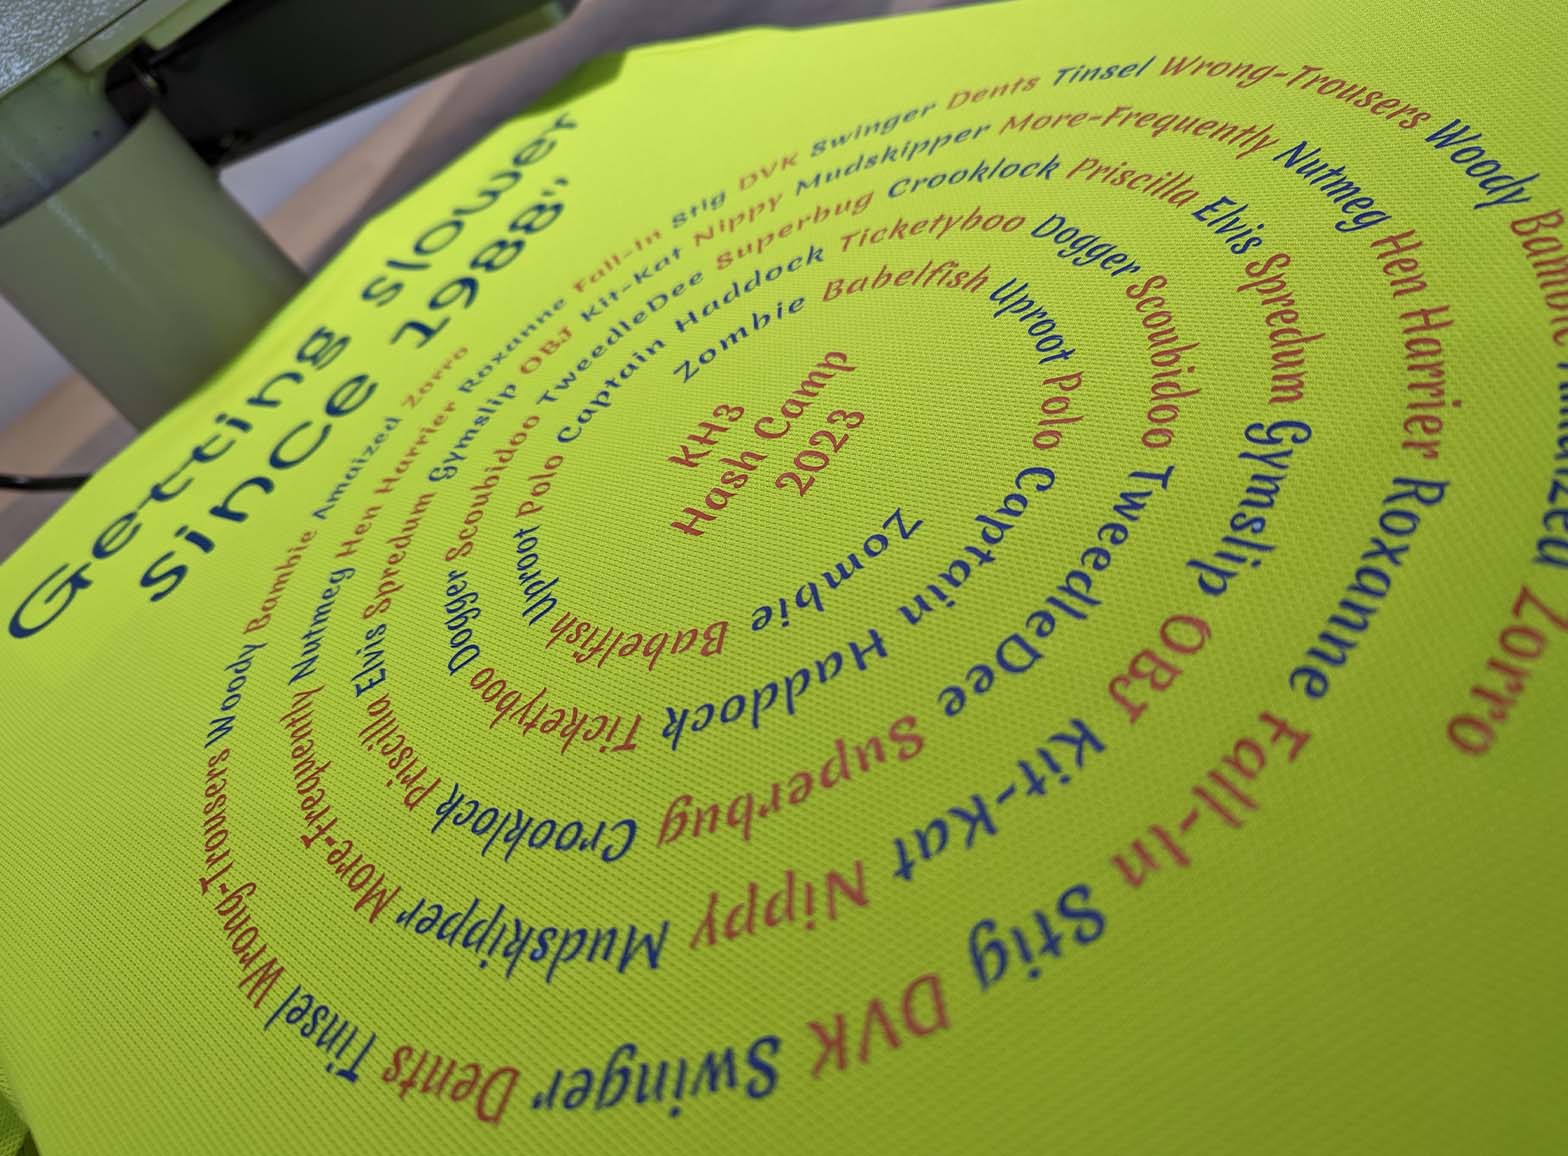 Getting slower
since 1988"
KH3
Hash Camp
2023
Zombie Babelfish Uproot Polo Captain Haddock Ticketyboo Dogger Scoubidoo TweedleDee Superbug Crooklock Priscilla Elvis Spredum Gymslip OBJ Kit-Kat Nippy Mudskipper More-Frequently Nutmeg Hen Harrier Roxanne Fall-In Stig DVK Swinger Dents Tinsel Wrong-Trousers Woody Bambie Amaized Zorro
Zombie Babelfish Uproot Polo Captain Haddock Ticketyboo Dogger Scoubidoo TweedleDee Superbug Crooklock Priscilla Elvis Spredum Gymslip OBJ Kit-Kat Nippy Mudskipper More-Frequently Nutmeg Hen Harrier Roxanne Fall-In Stig DVK Swinger Dents Tinsel Wrong-Trousers Woody Bambie Amaized Zorro